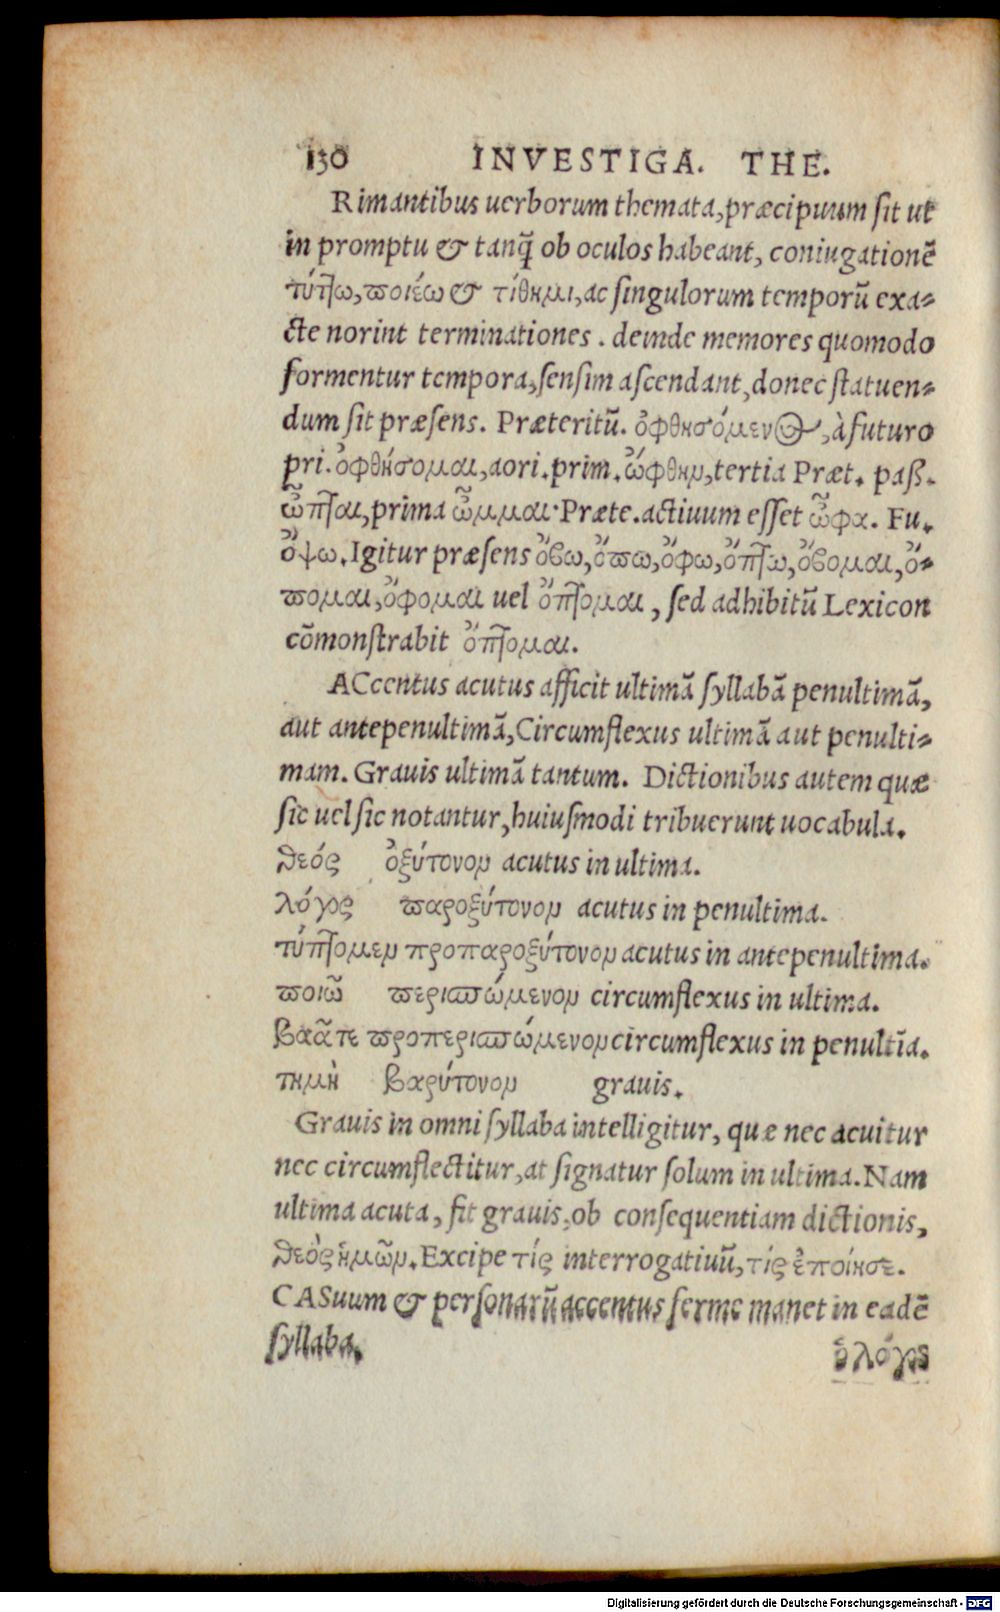 130 INVESTIGA. THE.
Rimantibus uerborum themata, præcipuum sit ut
in promptu & tanq̃ ob oculos habeant, coniugationẽ
τύπτω, ποιέω & τίθημι, ac singulorum temporũ exa-
cte norint terminationes. deinde memores quomodo
formentur tempora, sensim ascendant, donec statuen-
dum sit præsens. Præteritũ. ὀφθησόμενος, à futuro
pri. ὀφθήσομαι, aori. prim. ὤφθην, tertia Præt. paß.
ὦπται, prima ὦμμαι. Præte. actiuum esset ὦφα. Fu.
ὄψω. Igitur præsens ὄβω, ὄπω, ὄφω, ὄπτω, ὄβομαι, ὄ-
πομαι, ὄφομαι uel ὄπτομαι, sed adhibitũ Lexicon
cõmonstrabit ὄπτομαι.
ACcentus acutus afficit ultimã syllabã penultimã,
aut antepenultimã, Circumflexus ultimã aut penulti-
mam. Grauis ultimã tantum. Dictionibus autem quæ
sic uel sic notantur, huiusmodi tribuerunt uocabula.
θεός ὀξύτονον acutus in ultima.
λόγος παροξύτονον acutus in penultima.
τύπτομεν προπαροξύτονον acutus in antepenultima.
ποιῶ περισπώμενον circumflexus in ultima.
βαᾶτε προπερισπώμενον circumflexus in penultĩa.
τημὴ βαρύτονον grauis.
Grauis in omni syllaba intelligitur, quæ nec acuitur
nec circumflectitur, at signatur solum in ultima. Nam
ultima acuta, fit grauis, ob consequentiam dictionis,
θεὸς ἡμῶν. Excipe τίς interrogatiuũ, τίς ἐποίησε.
CASuum & personarũ accentus ferme manet in eadẽ
syllaba. ὁ λόγος
Digitalisierung gefördert durch die Deutsche Forschungsgemeinschaft - DFG